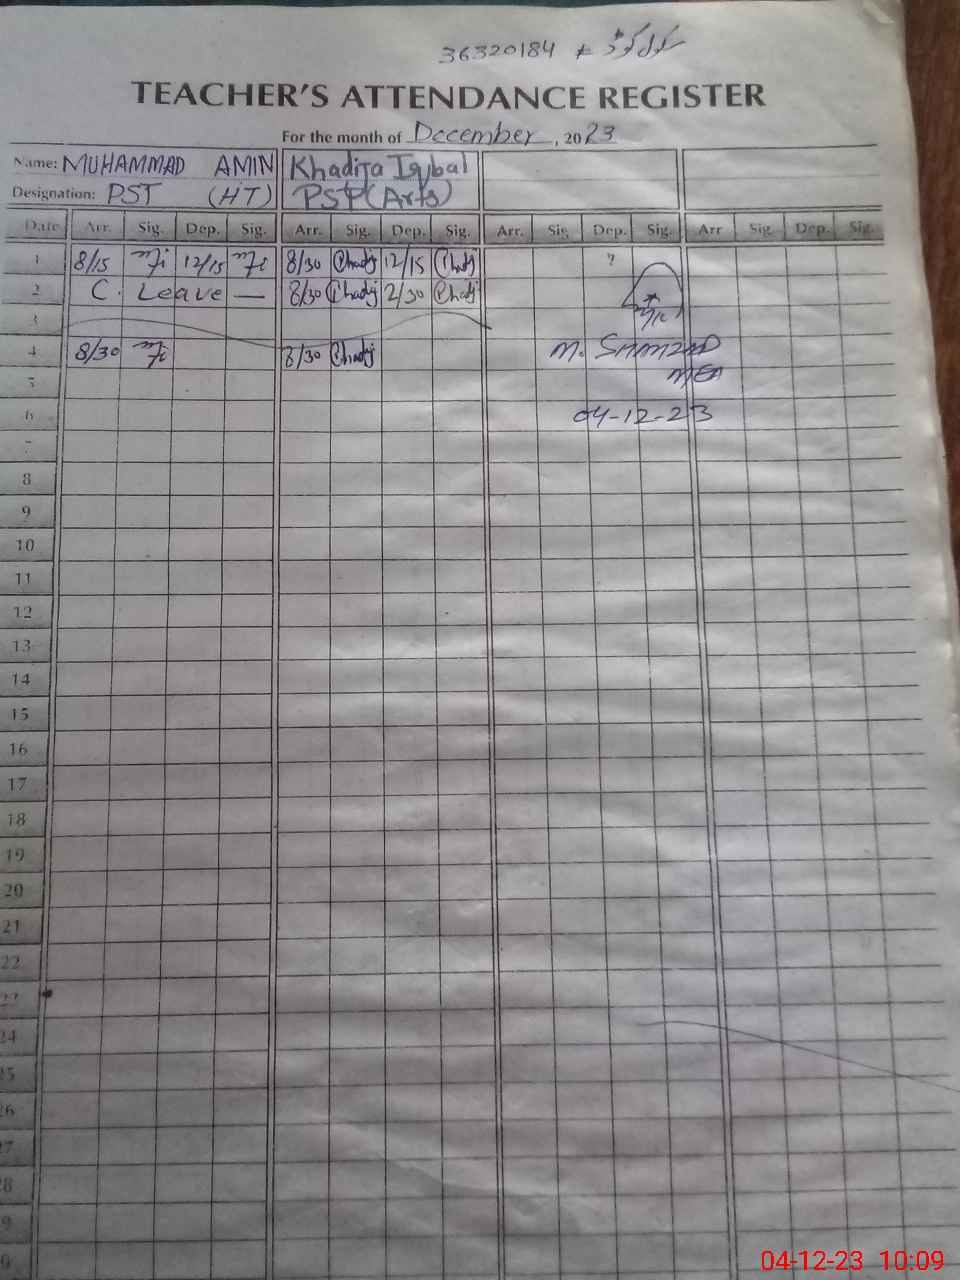 36320184 * سکول کوڈ
TEACHER'S ATTENDANCE REGISTER
For the month of December, 2023
Name: MUHAMMAD AMIN Khadija Iqbal
Designation: PST (HT) PST (Arts)
Date Arr. Sig. Dep. Sig. Arr. Sig. Dep. Sig. Arr. Sig Dep. Sig. Arr Sig. Dep. Sig.
1 8/15 12/15 8/30 Khadij 12/15 Khadij
2 C. Leave — 8/30 Khadij 2/30 Khadij
3
4 8/30 8/30 Khadij M. SHAHZAD
5 MEA
6 04-12-23
7
8
9
10
11
12
13
14
15
16
17
18
19
20
21
22
23
24
25
26
27
28
9
0
04-12-23 10:09